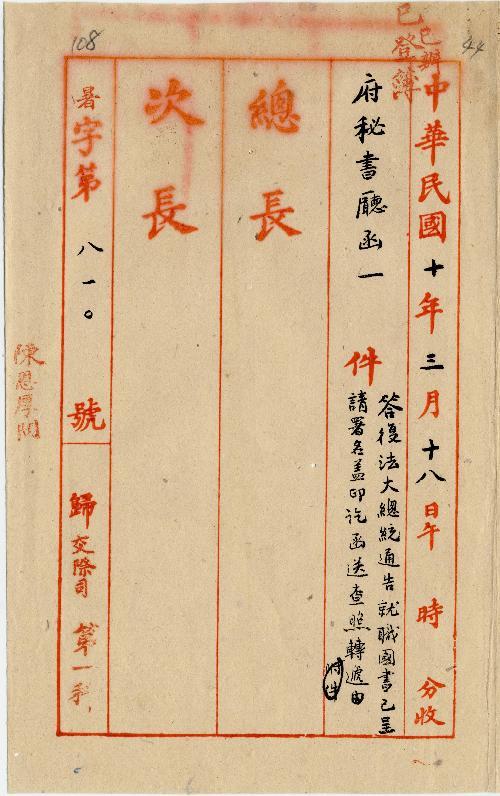 108
44
已登簿
已辦
中華民國十年三月十八日午 時 分收
府秘書廳函一件
答復法大總統通告就職國書已呈
請署名盖印訖函送查照轉遞由
附件
總長
次長
署字第八一〇號
歸交際司第一科